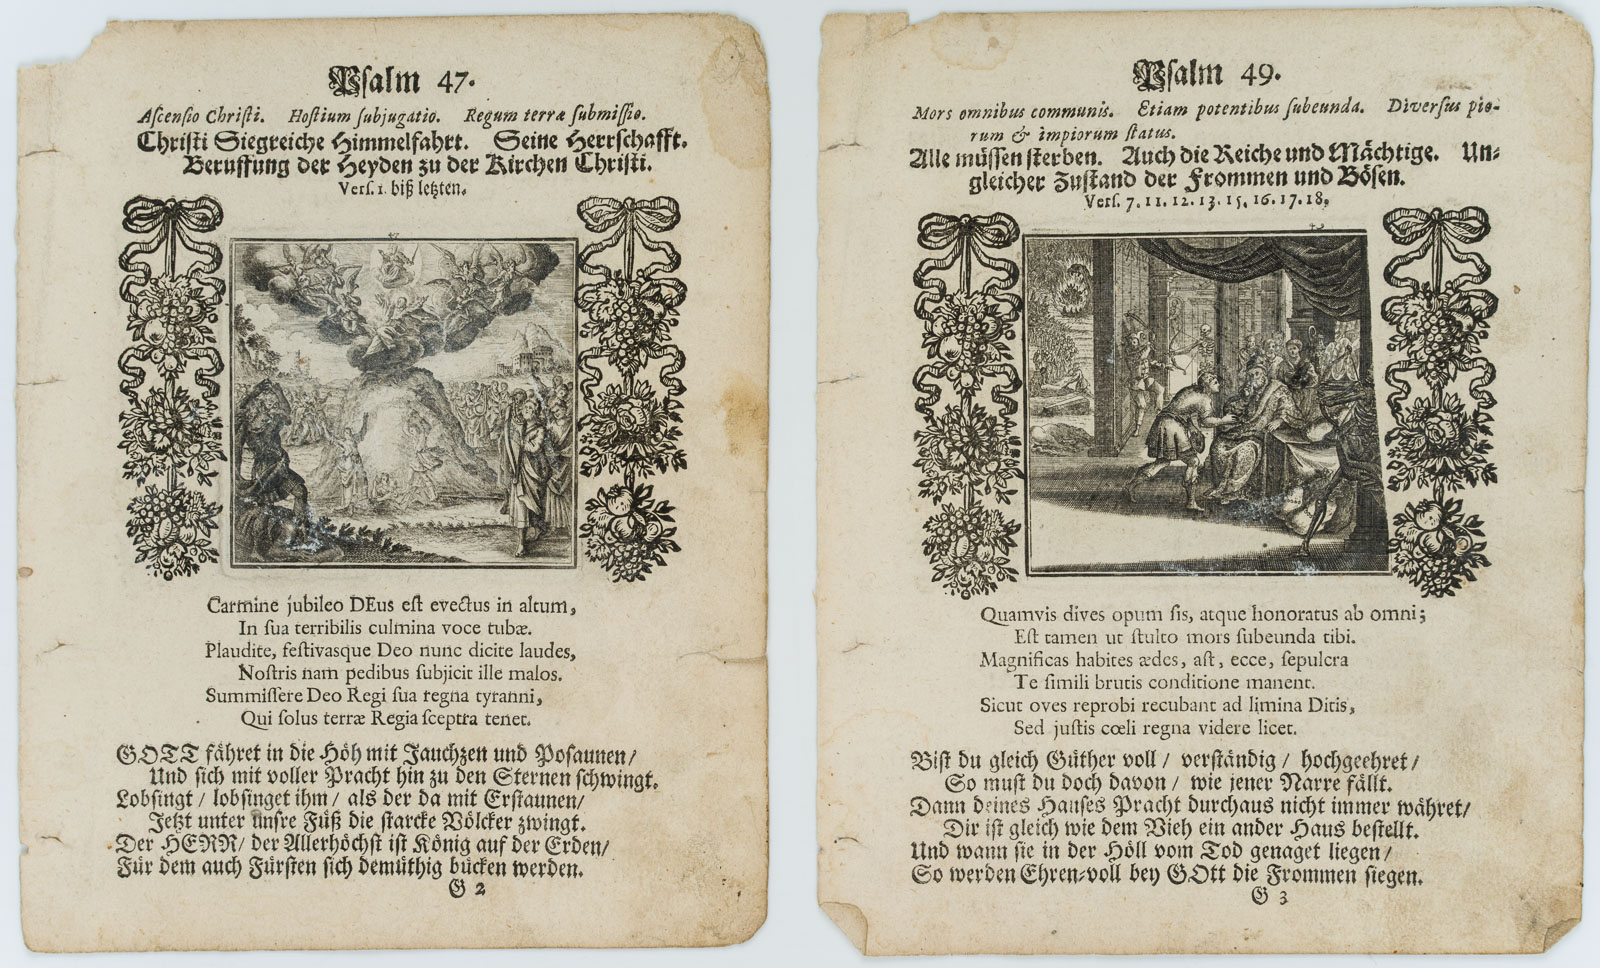 Psalm 47.
Ascensio Christi. Hostium subjugatio. Regum terræ submissio.
Christi Siegreiche Himmelfahrt. Seine Herrschafft.
Beruffung der Heyden zu der Kirchen Christi.
Vers. 1. biß letzten.
47
Carmine jubileo DEus est evectus in altum,
In sua terribilis culmina voce tubæ.
Plaudite, festivasque Deo nunc dicite laudes,
Nostris nam pedibus subjicit ille malos.
Summissere Deo Regi sua regna tyranni,
Qui solus terræ Regia sceptra tenet.
GOTT fähret in die Höh mit Jauchzen und Posaunen/
Und sich mit voller Pracht hin zu den Sternen schwingt.
Lobsingt / lobsinget ihm / als der da mit Erstaunen/
Jetzt unter unsre Füß die starcke Völcker zwingt.
Der HERR/ der Allerhöchst ist König auf der Erden/
Für dem auch Fürsten sich demüthig bücken werden.
G 2
Psalm 49.
Mors omnibus communis. Etiam potentibus subeunda. Diversus pio-
rum & impiorum status.
Alle müssen sterben. Auch die Reiche und Mächtige. Un-
gleicher Zustand der Frommen und Bösen.
Vers. 7. 11. 12. 13. 15. 16. 17. 18.
49
Quamvis dives opum sis, atque honoratus ab omni;
Est tamen ut stulto mors subeunda tibi.
Magnificas habites ædes, ast, ecce, sepulcra
Te simili brutis conditione manent.
Sicut oves reprobi recubant ad limina Ditis,
Sed justis cœli regna videre licet.
Bist du gleich Güther voll / verständig / hochgeehret /
So must du doch davon / wie jener Narre fällt.
Dann deines Hauses Pracht durchaus nicht immer währet/
Dir ist gleich wie dem Vieh ein ander Haus bestellt.
Und wann sie in der Höll vom Tod genaget liegen/
So werden Ehren-voll bey GOtt die Frommen siegen.
G 3